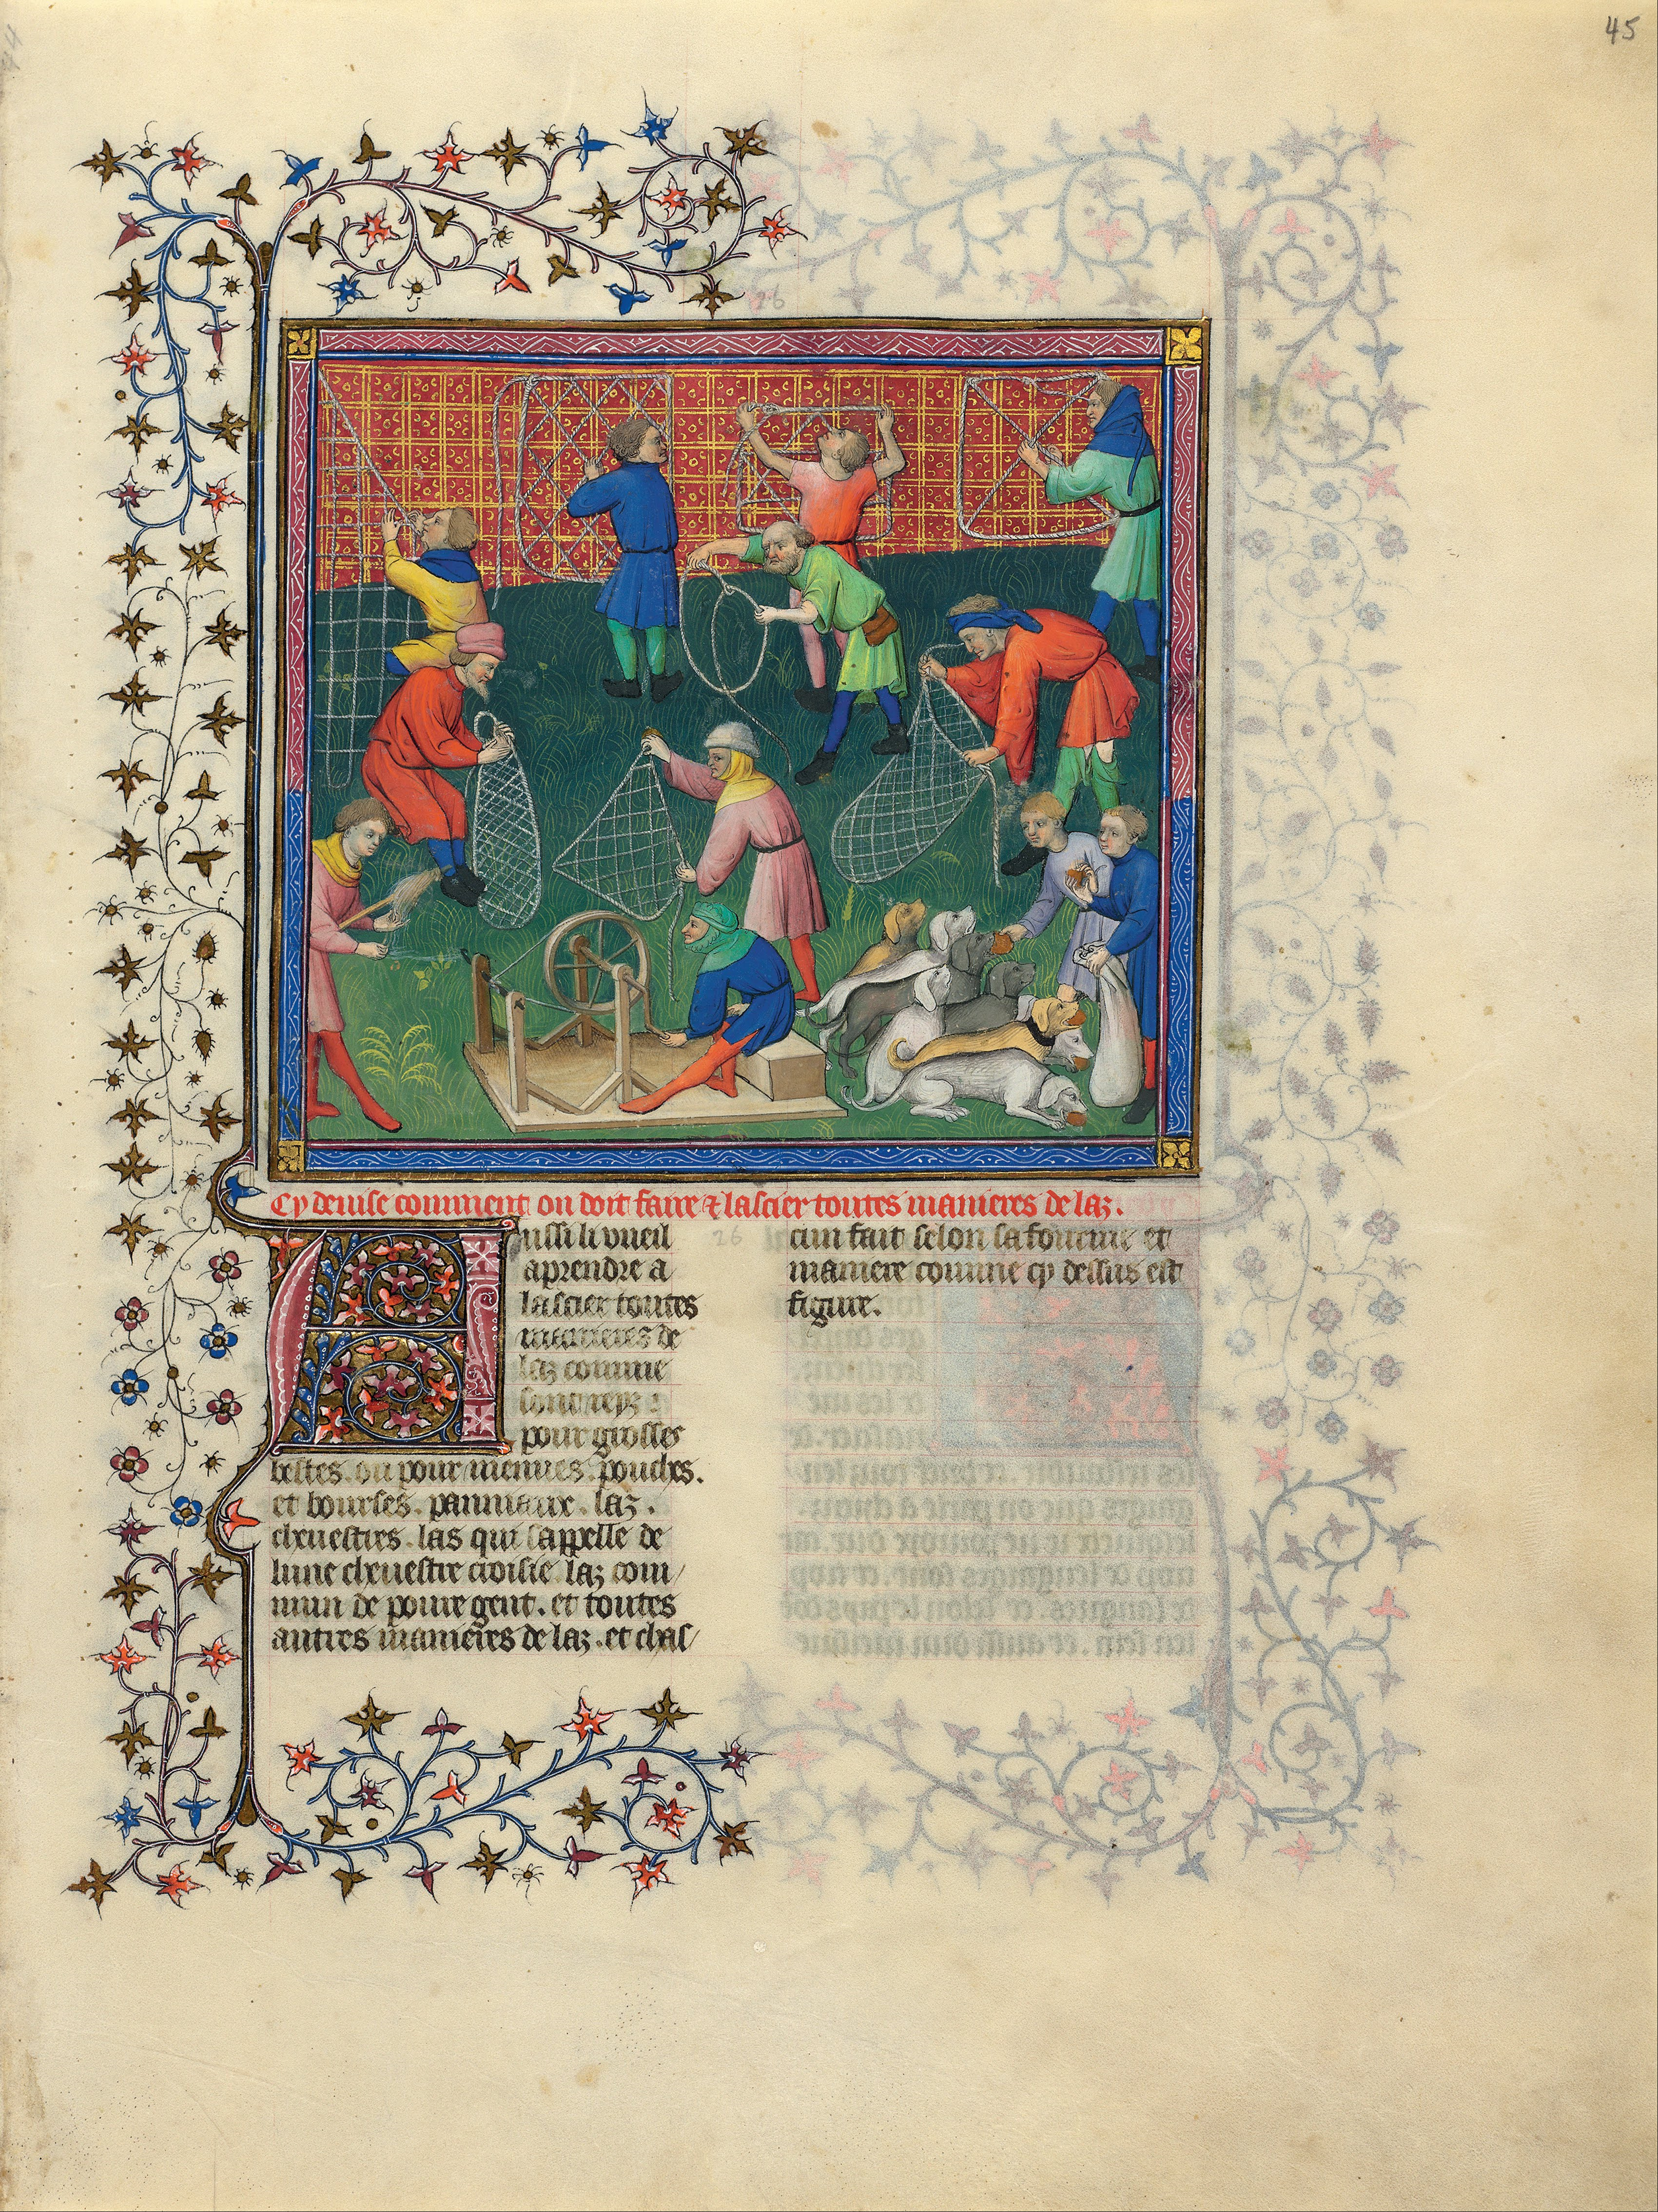 45
26
Cy deuise comment on doit faire & lascier toutes manieres de laz.
Aussi li vueil
aprendre a
lascier toutes
manieres de
laz comme
sont
pour grosses
bestes. ou pour menues. pouches.
et bourses. panniaux. laz.
cheuestres. las qui sappelle de
lune cheuestre croisie laz com
mun de poure gent. et toutes
autres manieres de laz. et chas
26
cun fait selon sa fourme et
maniere comme cy dessus est
figure.